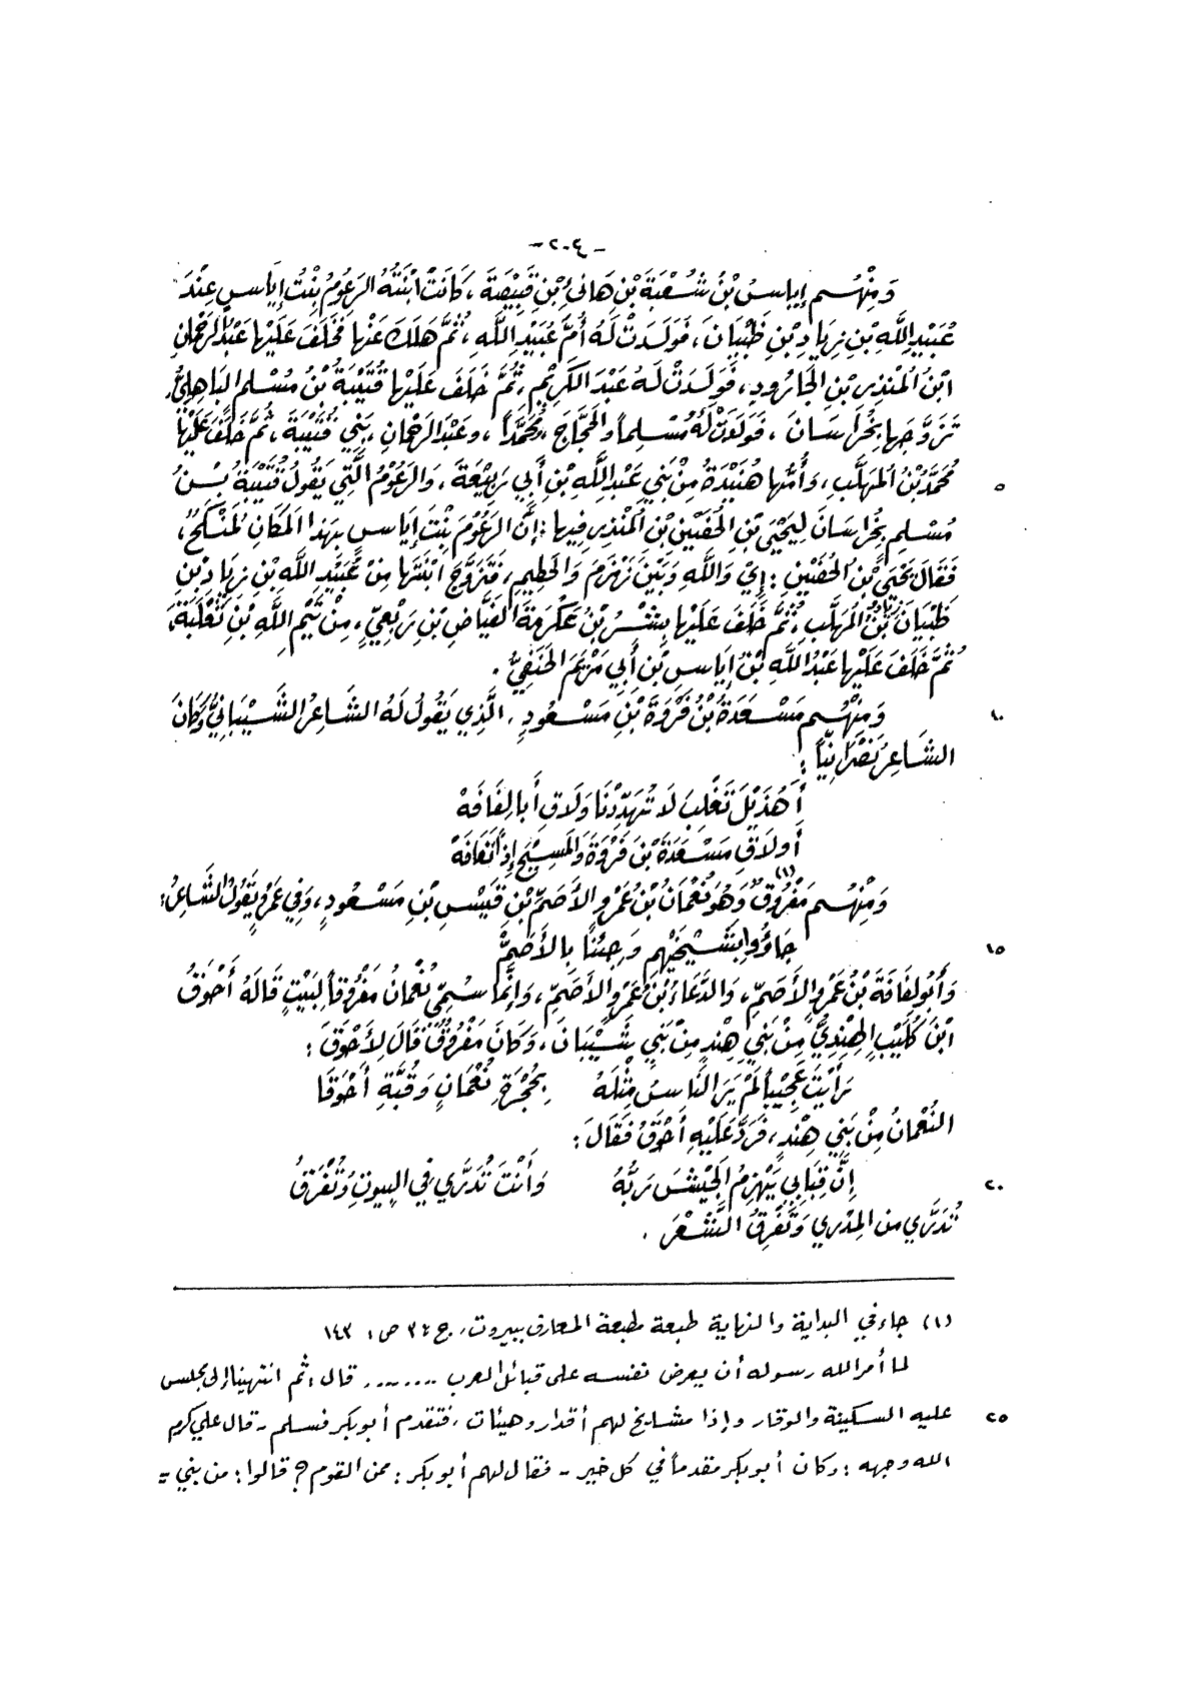 -٢٠٤-
وَمِنْهُم إِيَاسُ بْنُ شُعْبَةَ بْنِ هَانِئِ بْنِ قَبِيْصَةَ، كَانَتْ ابْنَتُهُ الرَعُومُ بِنْتُ إِيَاسٍ عِنْدَ
عُبَيْدِ اللَّهِ بْنِ زِيَادِ بْنِ ظَبْيَانَ، فَوَلَدَتْ لَهُ أُمَّ عُبَيْدِ اللَّهِ، ثُمَّ هَلَكَ عَنْهَا فَخَلَفَ عَلَيْهَا عَبْدُ الرَحْمَانِ
ابْنُ الْمُنْذِرِ بْنِ الجَارُودِ، فَوَلَدَتْ لَهُ عَبْدَ الكَرِيْمِ، ثُمَّ خَلَفَ عَلَيْهَا قُتَيْبَةُ بْنُ مُسْلِمٍ البَاهِلِيُّ،
تَزَوَّجَهَا بِخُرَاسَانَ، فَوَلَدَتْ لَهُ مُسْلِماً والحَجَّاجَ، ومُحَمَّداً، وعَبْدَ الرَحْمَانِ، بَنِي قُتَيْبَةَ، ثُمَّ خَلَفَ عَلَيْهَا
مُحَمَّدُ بْنُ المُهَلَّبِ، وَأُمُّهَا هُنَيْدَةُ مِنْ بَنِي عَبْدِ اللَّهِ بْنِ أَبِي رَبِيْعَةَ، وَالرَعُوْمُ الَّتِي يَقُولُ قُتَيْبَةُ بْنُ
٥
مُسْلِمٍ بِخُرَاسَانَ لِيَحْيَى بْنِ الحُضَيْنِ بْنِ المُنْذِرِ فِيهَا: إِنَّ الرَعُوْمَ بِنْتَ إِيَاسٍ بِهَذَا المَكَانِ لَمَنْكَحٌ،
فَقَالَ يَحْيَى بْنُ الحُضَيْنِ: إِيْ وَاللَّهِ وَبَيْنَ زَمْزَمَ وَالحَطِيمِ، فَتَزَوَّجَ ابْنَتَهَا مِنْ عُبَيْدِ اللَّهِ بْنِ زِيَادِ بْنِ
ظَبْيَانَ زِيَادُ بْنُ المُهَلَّبِ، ثُمَّ خَلَفَ عَلَيْهَا بِشْرُ بْنُ عِكْرِمَةَ الفَيَّاضِ بْنِ رِبْعِيٍّ، مِنْ تَيْمِ اللَّهِ بْنِ ثَعْلَبَةَ،
ثُمَّ خَلَفَ عَلَيْهَا عَبْدُ اللَّهِ بْنُ إِيَاسِ بْنِ أَبِي مَرْيَمَ الحَنَفِيُّ.
وَمِنْهُم مَسْعَدَةُ بْنُ فَرْوَةَ بْنِ مَسْعُودٍ، الَّذِي يَقُولُ لَهُ الشَاعِرُ الشَّيْبَانِيُّ وَكَانَ
١٠
الشَاعِرُ نَصْرَانِيّاً:
أَهُذَيْلَ تَغْلِبَ لَا تُهَدِّدْنَا وَلَاقِ أَبَا لِفَافَهْ
أَو لَاقِ مَسْعَدَةَ بْنَ فَرْوَةَ وَالمَسِيْحِ إِذاً تَعَافَهْ
وَمِنْهُم مَفْرُوقٌ (١) وَهُوَ نُعْمَانُ بْنُ عَمْرٍو الأَصَمِّ بْنِ قَيْسِ بْنِ مَسْعُودٍ، وَفِي عَمْرٍو يَقُولُ الشَّاعِرُ:
جَاؤُوا بِشَيْخَيْهِم وَجِئْنَا بِالأَصَمّ
١٥
وَأَبُو لِفَافَةَ بْنُ عَمْرٍو الأَصَمِّ، وَالدَّعَّاءُ بْنُ عَمْرٍو الأَصَمِّ، وَإِنَّمَا سُمِّيَ نُعْمَانُ مَفْرُوقاً لِبَيْتٍ قَالَهُ أَحْوَقُ
ابْنُ كُلَيْبٍ الهِنْدِيُّ مِنْ بَنِي هِنْدٍ مِنْ بَنِي شَيْبَانَ، وَكَانَ مَفْرُوقٌ قَالَ لِأَحْوَقَ:
رَأَيْتَ عَجِيْباً لَمْ يَرَ النَاسُ مِثْلَهُ بِحُجْرَةِ نُعْمَانٍ وَقُبَّةِ أَحْوَقَا
النُعْمَانُ مِنْ بَنِي هِنْدٍ، فَرَدَّ عَلَيْهِ أَحْوَقُ فَقَالَ:
إِنَّ قِبَابِي يَهْزِمُ الجَيْشَ رَبُّهُ وَأَنْتَ تُدَرَّي فِي البيوتِ وَتُفْرَقُ
٢٠
تُدَرَّي من المِدْرِي وَتَفْرِقُ الشَّعْرَ.
(١) جاء في البداية والنهاية طبعة مطبعة المعارف ببيروت، ج: ٣ ص: ١٤٣
لما أمر الله رسوله أن يعرض نفسه على قبائل العرب ........ قال: ثم انتهينا إلى مجلس
عليه السكينة والوقار وإذا مشايخ لهم أقدار وهيئات، فتقدم أبو بكر فسلم - قال علي كرم
٢٥
الله وجهه: وكان أبو بكر مقدماً في كل خير - فقال لهم أبو بكر: ممن القوم؟ قالوا: من بني =